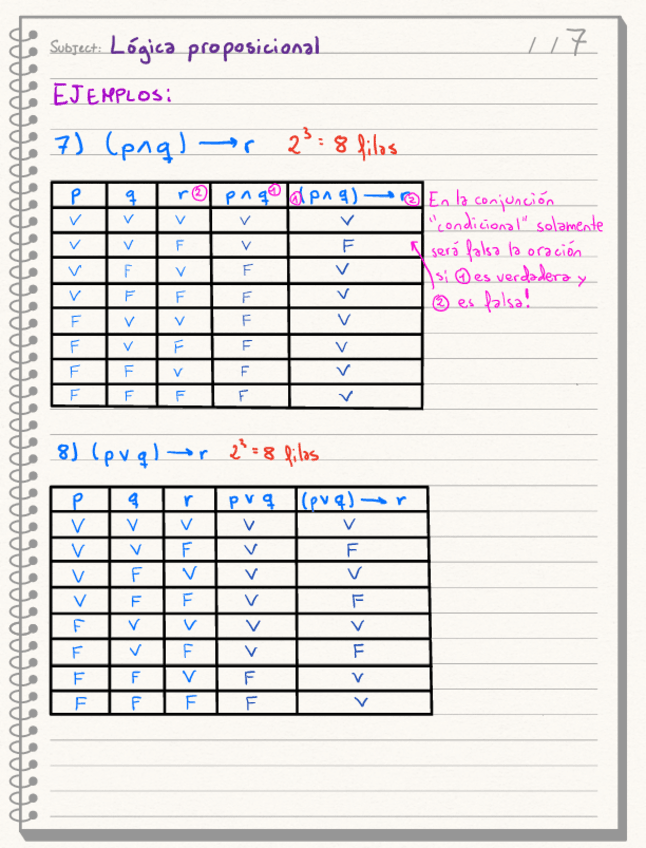 Subject: Lógica proposicional
/ / 7
EJEMPLOS:
7) (p∧q) → r 2³ = 8 filas
p q r② p∧q① ①(p∧q) → r②
V V V V V
V V F V F
V F V F V
V F F F V
F V V F V
F V F F V
F F V F V
F F F F V
En la conjunción
"condicional" solamente
será falsa la oración
si ① es verdadera y
② es falsa!
8) (p∨q) → r 2³ = 8 filas
p q r p∨q (p∨q) → r
V V V V V
V V F V F
V F V V V
V F F V F
F V V V V
F V F V F
F F V F V
F F F F V